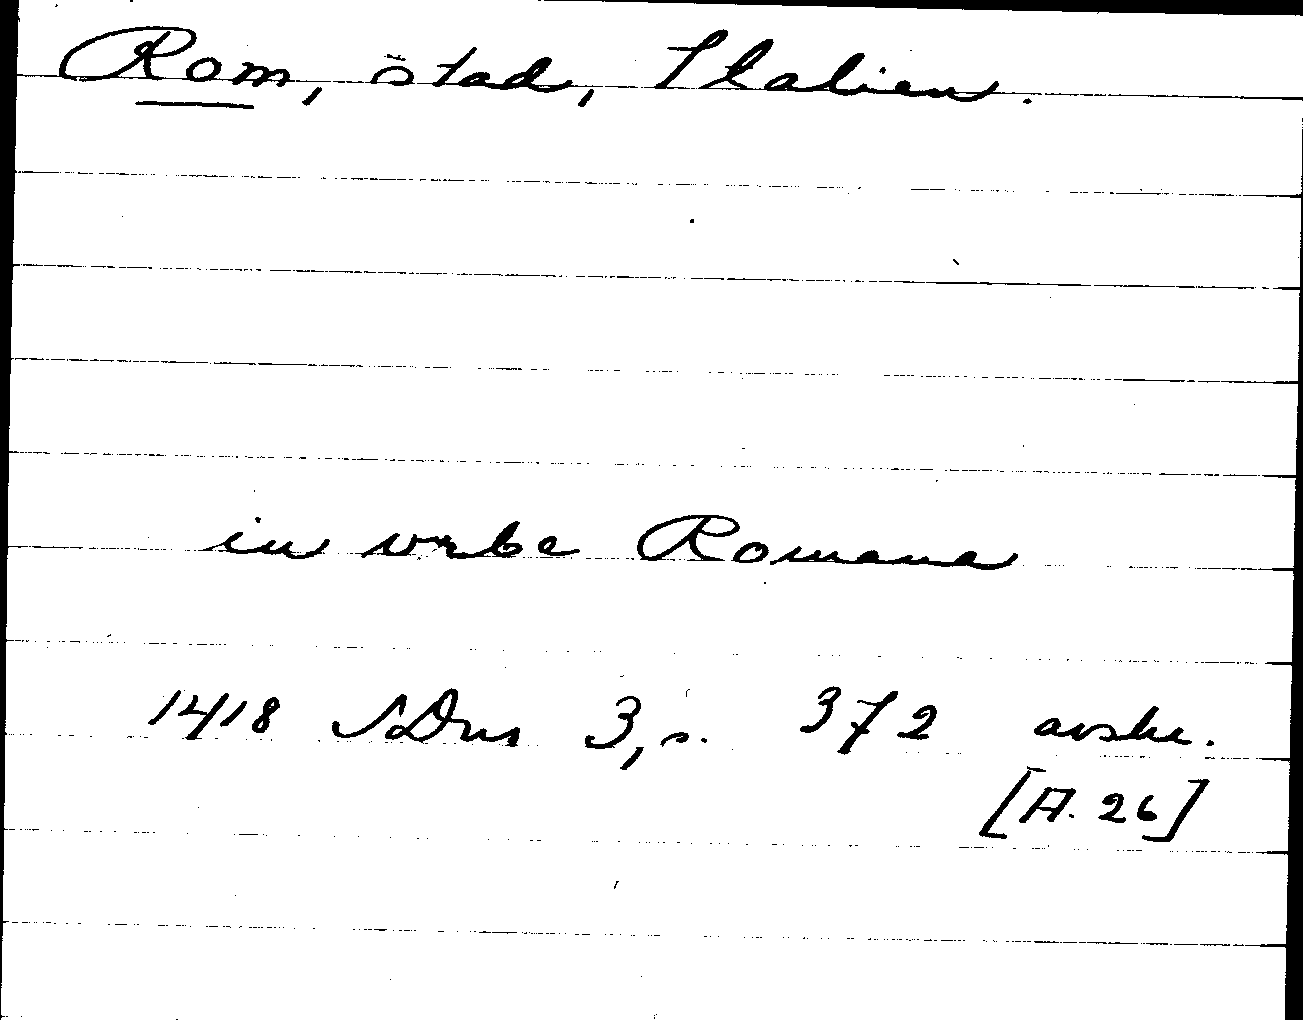 Rom, stad, Italien.
in vrbe Romana
1418 SDns 3, s. 372 avskr.
[A. 26]